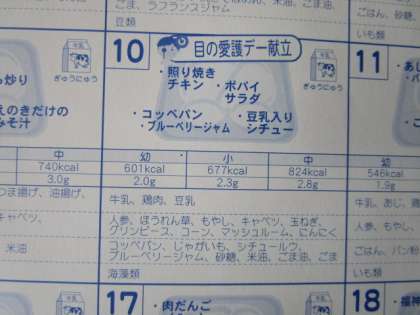 ごま、ラフランスジャム
豆類
ごはん、
いも類
10 目の愛護デー献立
11
牛乳
ぎゅうにゅう
牛乳
ぎゅうにゅう
・照り焼き
チキン
・ポパイ
サラダ
・コッペパン
・ブルーベリージャム
・豆乳入り
シチュー
炒り
えのきだけの
みそ汁
・あじ
中 幼 小 中 幼
740kcal 601kcal 677kcal 824kcal 546kcal
3.0g 2.0g 2.3g 2.8g 1.9g
つま揚げ、油揚げ、
牛乳、鶏肉、豆乳
牛乳、あじ、鶏
キャベツ、
人参、ほうれん草、もやし、キャベツ、玉ねぎ、
グリンピース、コーン、マッシュルーム、にんにく
人参、もやし、
米油
コッペパン、じゃがいも、シチュールウ、
ブルーベリージャム、砂糖、米油、ごま油、ごま
ごはん、パン粉
海藻類
いも類
17 ・肉だんご
18 ・福神
牛乳